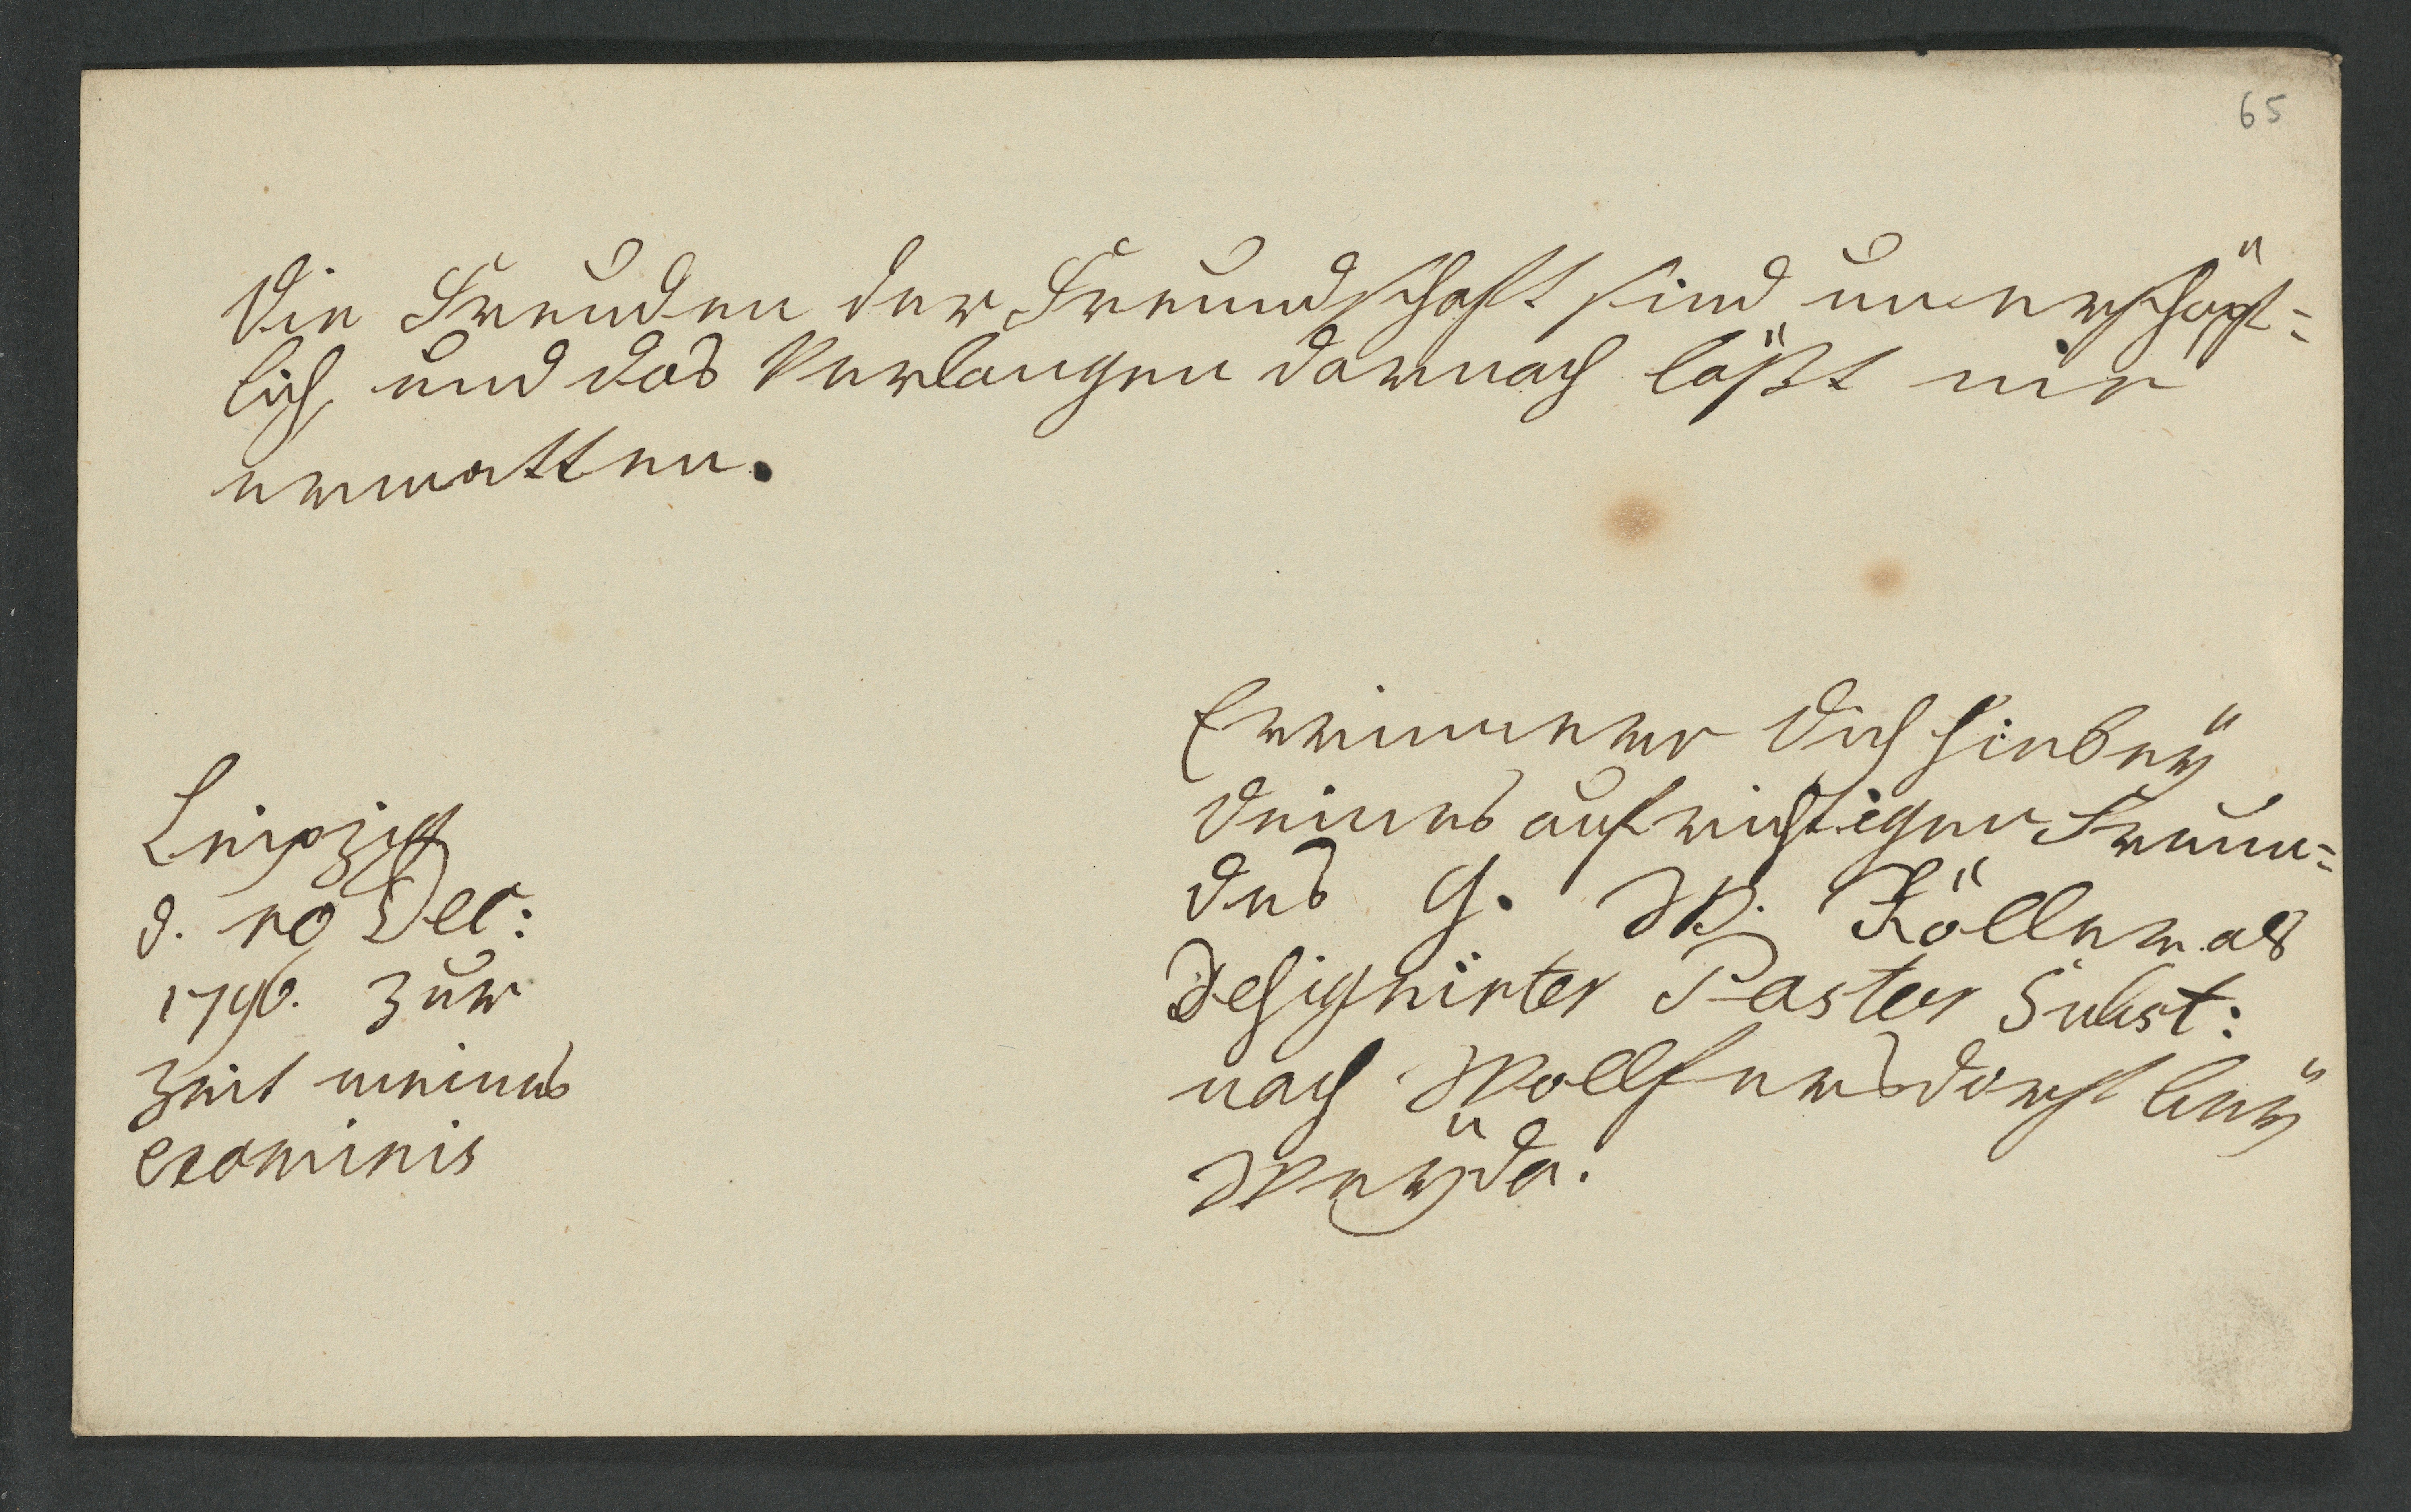 65
Die Freuden der Freundschaft sind unerschöpf=
lich, und das Verlangen darnach läßt nie
ermatten.
Leipzig
d. 10 Dec:
1796. zur
Zeit meines
examinis
Erinnere Dich hierbeÿ
Deines aufrichtigen Freun=
des G. W. Köller als
Designirter Pastor Subst:
nach Wolfersdorf beÿ
Weÿda.